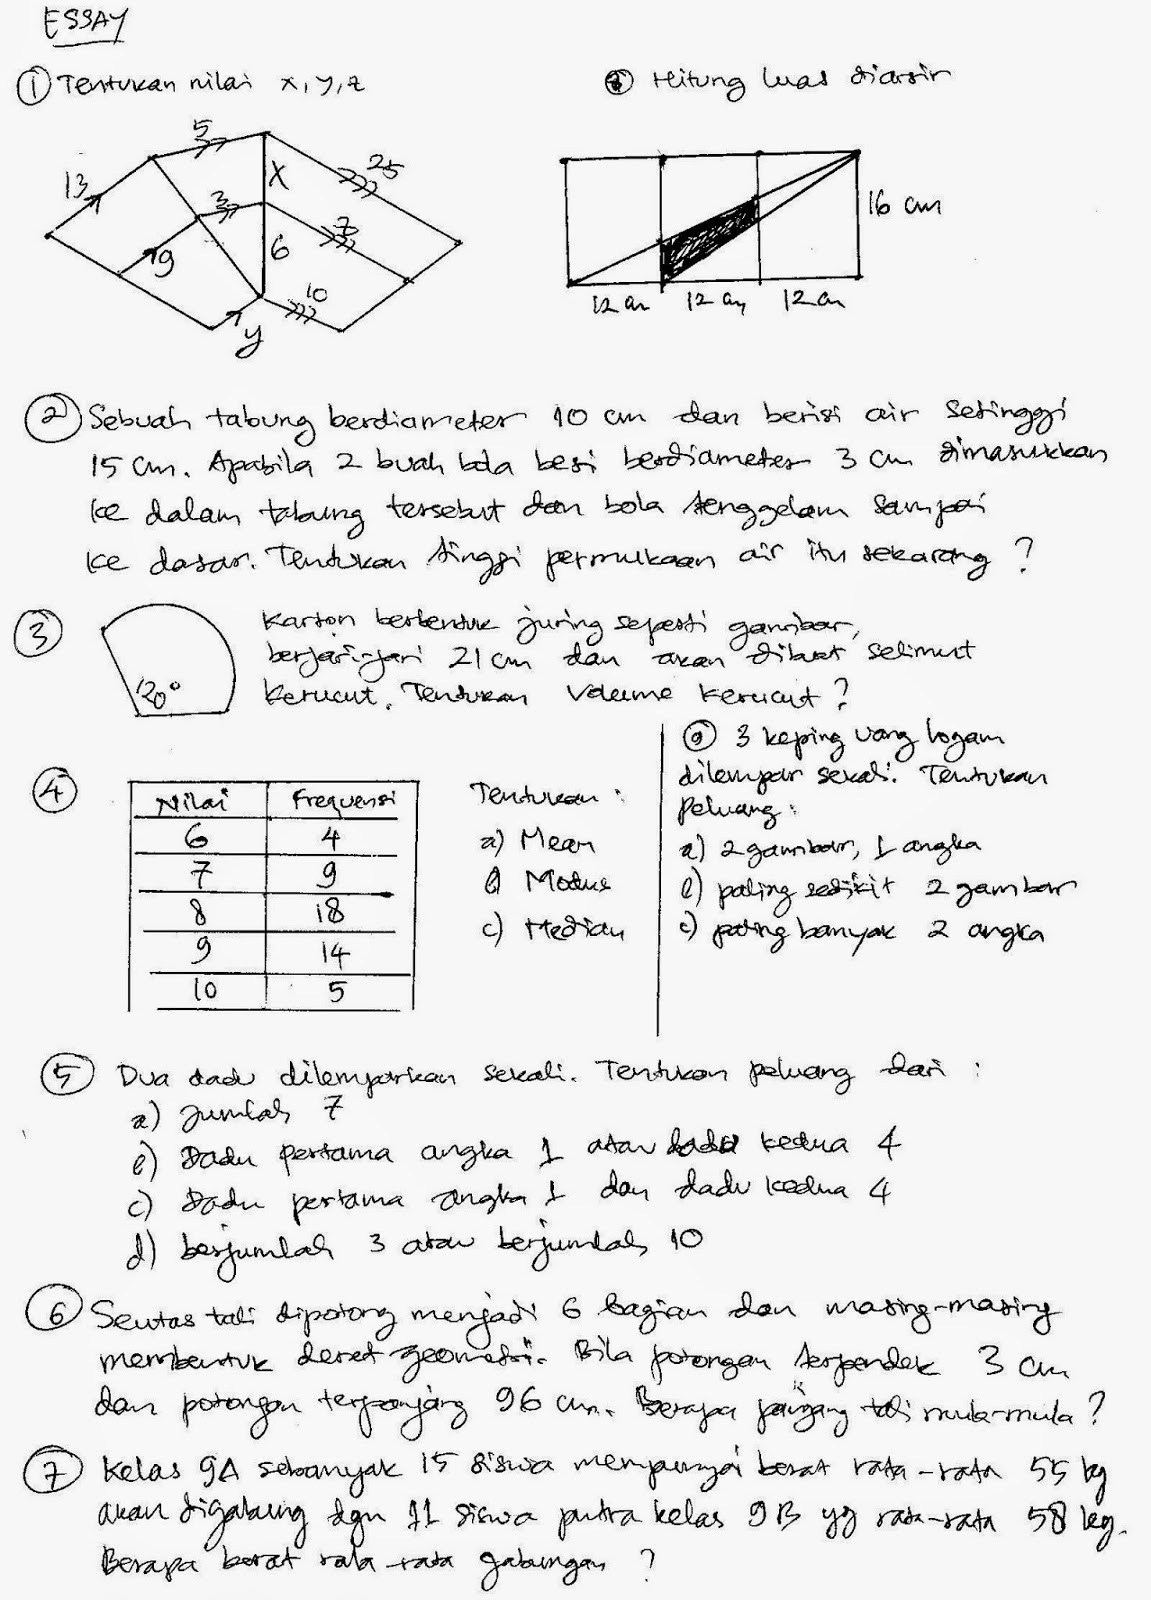 ESSAY
① Tentukan nilai x, y, z
13
5
3
9
x
6
25
7
10
y
⑧ Hitung luas diarsir
16 cm
12 cm 12 cm 12 cm
② Sebuah tabung berdiameter 10 cm dan berisi air setinggi
15 cm. Apabila 2 buah bola besi berdiameter 3 cm dimasukkan
ke dalam tabung tersebut dan bola tenggelam sampai
ke dasar. Tentukan tinggi permukaan air itu sekarang ?
③ Karton berbentuk juring seperti gambar,
berjari-jari 21 cm dan akan dibuat selimut
kerucut. Tentukan Volume kerucut ?
120°
④
Nilai Frequensi
6 4
7 9
8 18
9 14
10 5
Tentukan :
a) Mean
b) Modus
c) Median
⑨ 3 keping uang logam
dilempar sekali. Tentukan
peluang :
a) 2 gambar, 1 angka
b) paling sedikit 2 gambar
c) paling banyak 2 angka
⑤ Dua dadu dilemparkan sekali. Tentukan peluang dari :
a) jumlah 7
b) Dadu pertama angka 1 atau dadu kedua 4
c) Dadu pertama angka 1 dan dadu kedua 4
d) berjumlah 3 atau berjumlah 10
⑥ Seutas tali dipotong menjadi 6 bagian dan masing-masing
membentuk deret geometri. Bila potongan terpendek 3 cm
dan potongan terpanjang 96 cm. Berapa panjang tali mula-mula ?
⑦ Kelas 9A sebanyak 15 siswa mempunyai berat rata-rata 55 kg
akan digabung dgn 11 siswa putra kelas 9B yg rata-rata 58 kg.
Berapa berat rata-rata gabungan ?